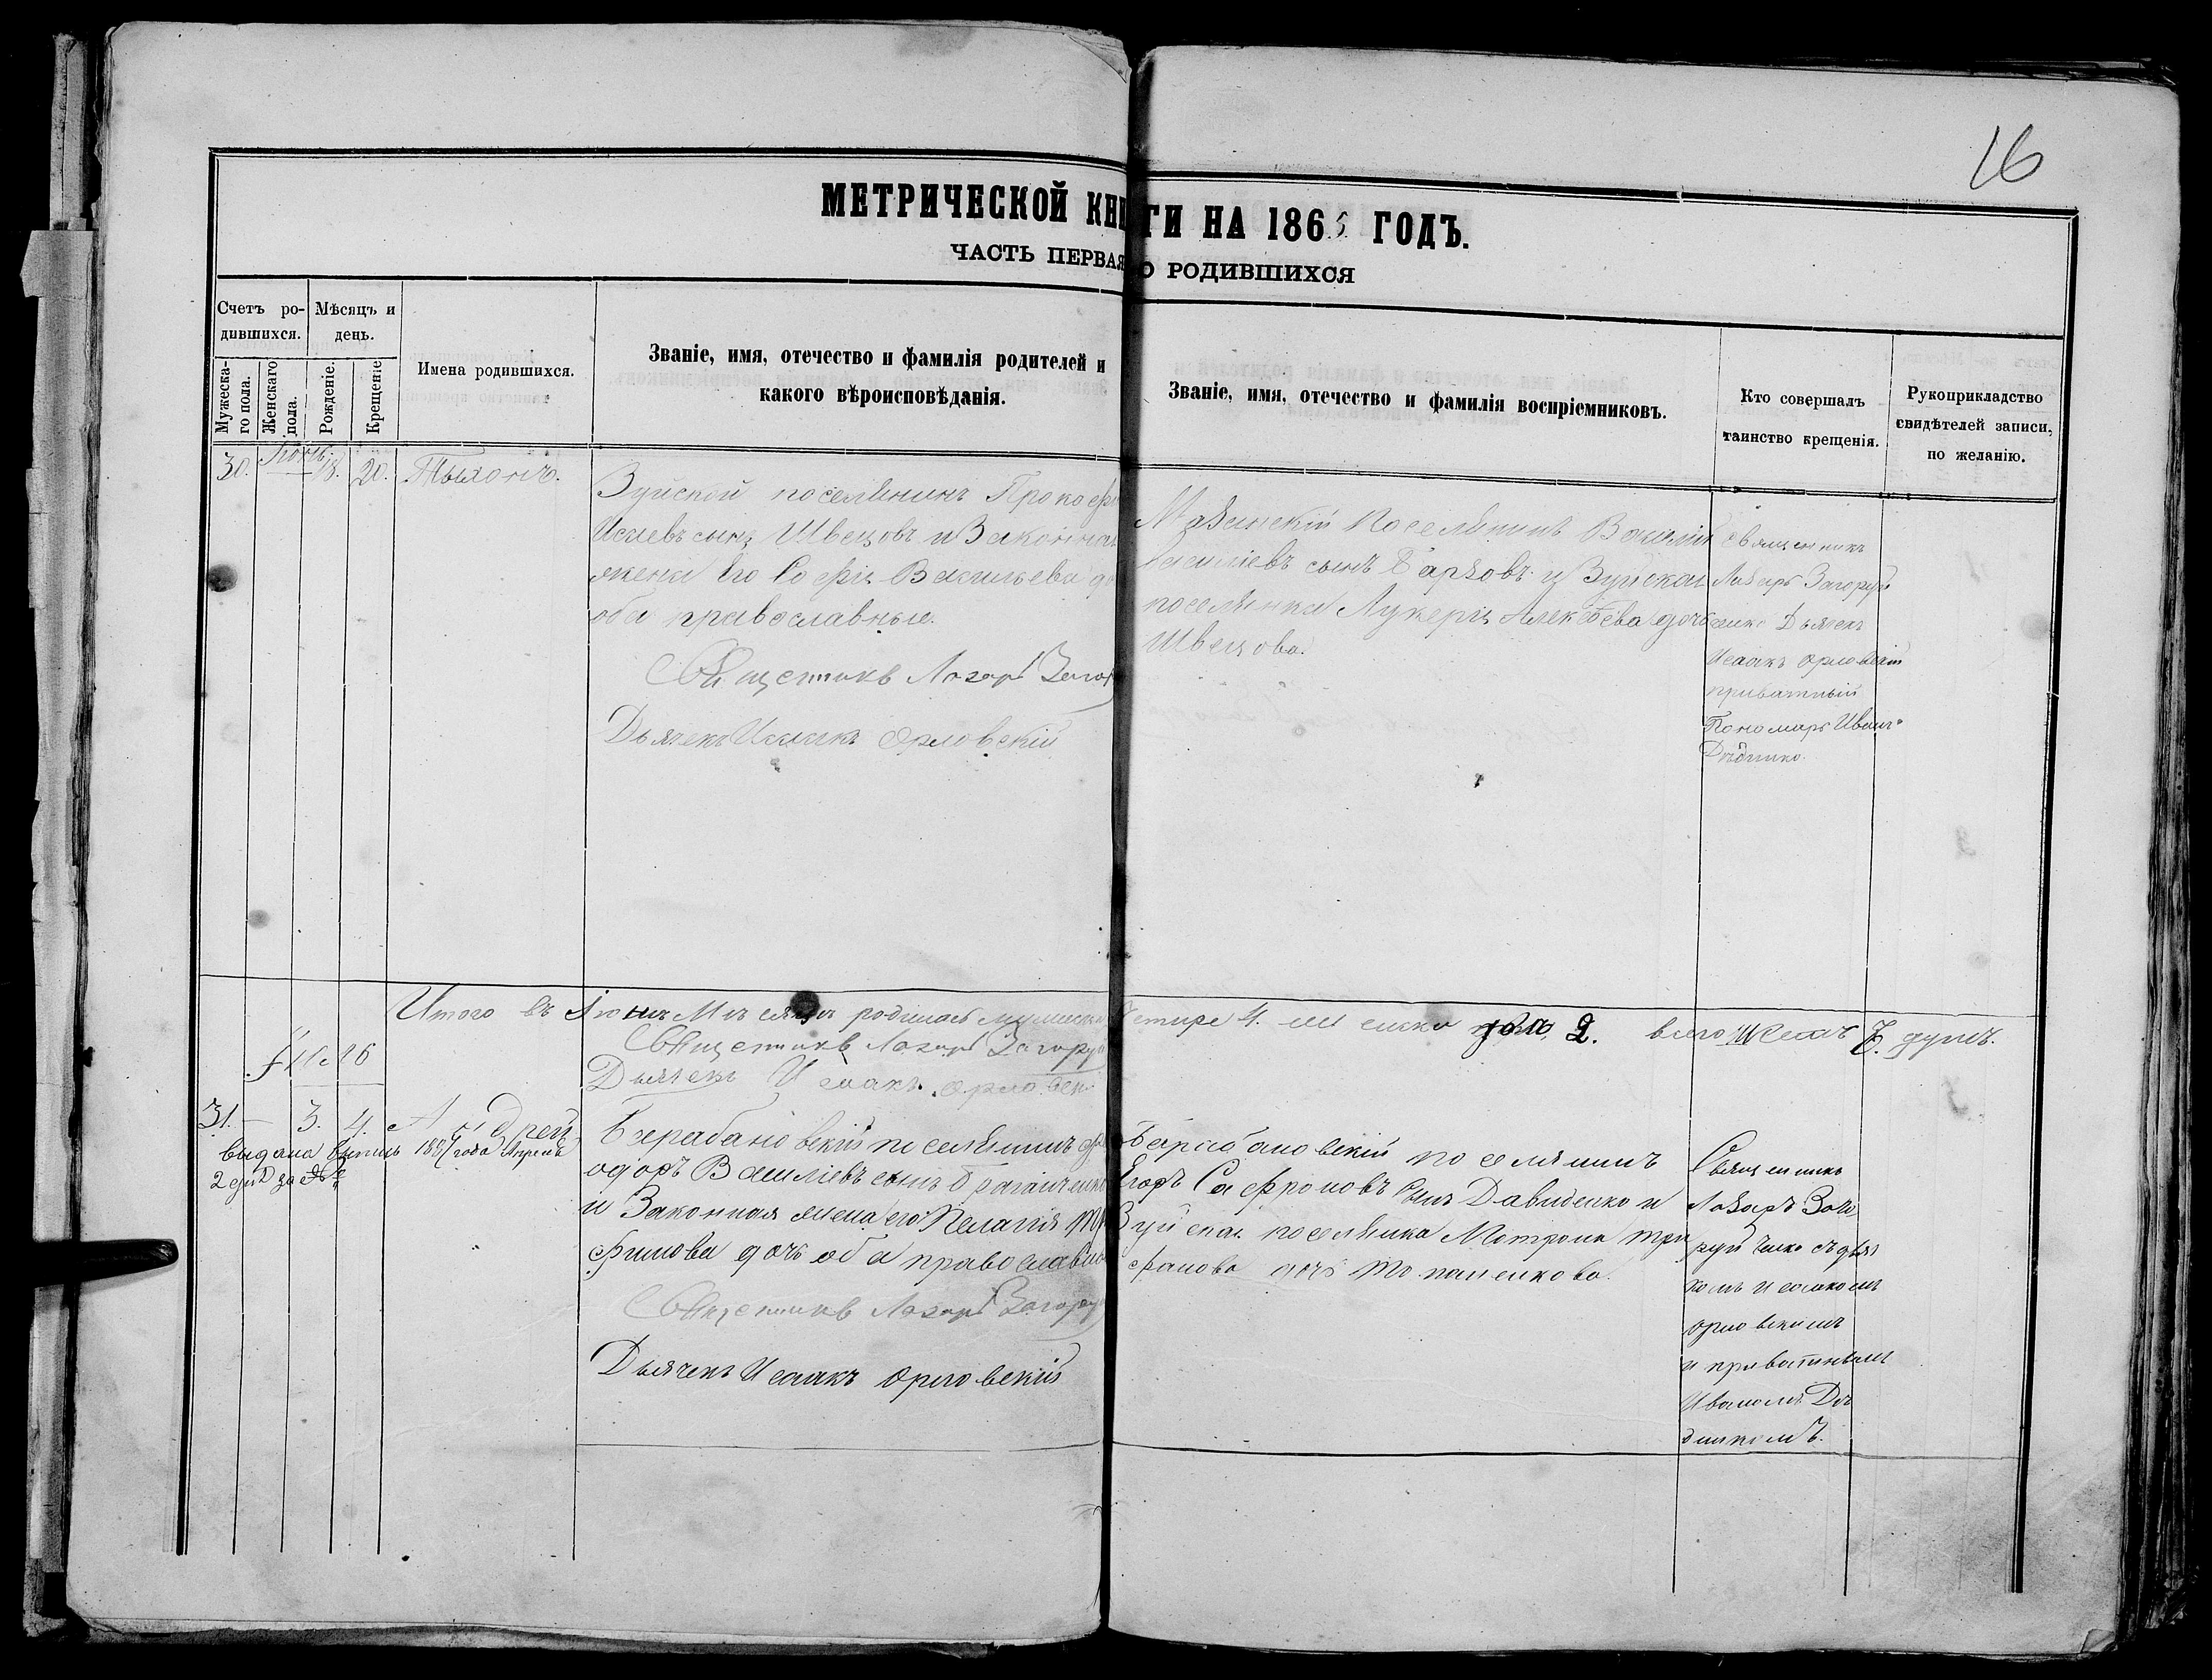 16
МЕТРИЧЕСКОЙ КНИГИ НА 1865 ГОДЪ.
ЧАСТЬ ПЕРВАЯ О РОДИВШИХСЯ
Счетъ ро-
дившихся.
Мѣсяцъ и
день.
Мужеска-
го пола.
Женскаго
пола.
Рожденіе.
Крещеніе
Имена родившихся.
Званіе, имя, отечество и фамилія родителей и
какого вѣроисповѣданія.
Званіе, имя, отечество и фамилія воспріемниковъ.
Кто совершалъ
таинство крещенія.
Рукоприкладство
свидѣтелей записи,
по желанію.
30. 18. 20. Тихонъ.
Зуйской поселянинъ Прокофі
сынъ Швецовъ и Законная
жена Его Софія Васильева
оба православные.
Священникъ Лазарь Загор
Дьячекъ Исаакъ Орловскій
Поселянинъ Василій
Василіевъ сынъ и Зуйская
поселянка Лукерія Алексѣева дочь
Швецова.
Священникъ
Лазарь Загоруй
ченко Дьячекъ
Исаакъ Орловскій
приватный
Пономарь Иванъ
Дѣдченко.
Итого въ Іюнѣ Мѣсяцѣ родилось мужеска
четыре 4. женска два 2. всего шесть 6. душъ.
Священникъ Лазарь Загоруй
Дьячекъ Исаакъ Орловск
31. — 3. 4. Андрей
выдана выпись 188 года Апреля
2 дня за №
Барабановскій поселянинъ Фе
одоръ Василіевъ сынъ
и Законная жена его Пелагія Тр
фимова дочь оба православны
Священникъ Лазарь Загоруй
Дьячекъ Исаакъ Орловскій
Барабановскій поселянинъ
Егоръ Сафроновъ сынъ Давиденко и
Зуйская поселянка Матрона Три
фанова дочь
Священникъ
Лазарь Заго
руйченко съ дьяч
комъ Исаакомъ
Орловскимъ
и приватнымъ
Иваномъ Дѣ
денкомъ.